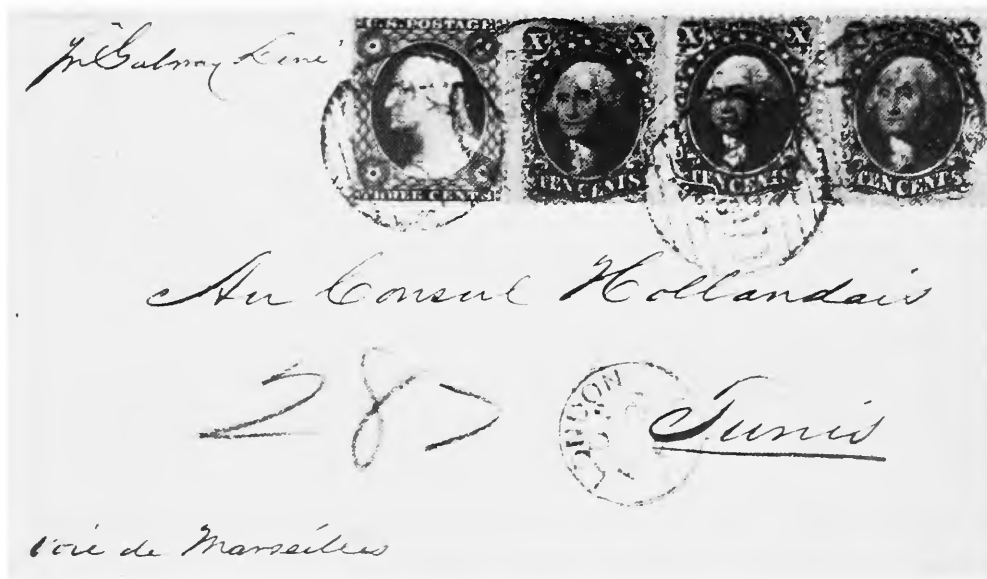 pr Galway Line
U.S. POSTAGE
THREE CENTS
X X
TEN CENTS
X X
TEN CENTS
X X
TEN CENTS
Au Consul Hollandais
287
LONDON
Tunis
voie de Marseilles